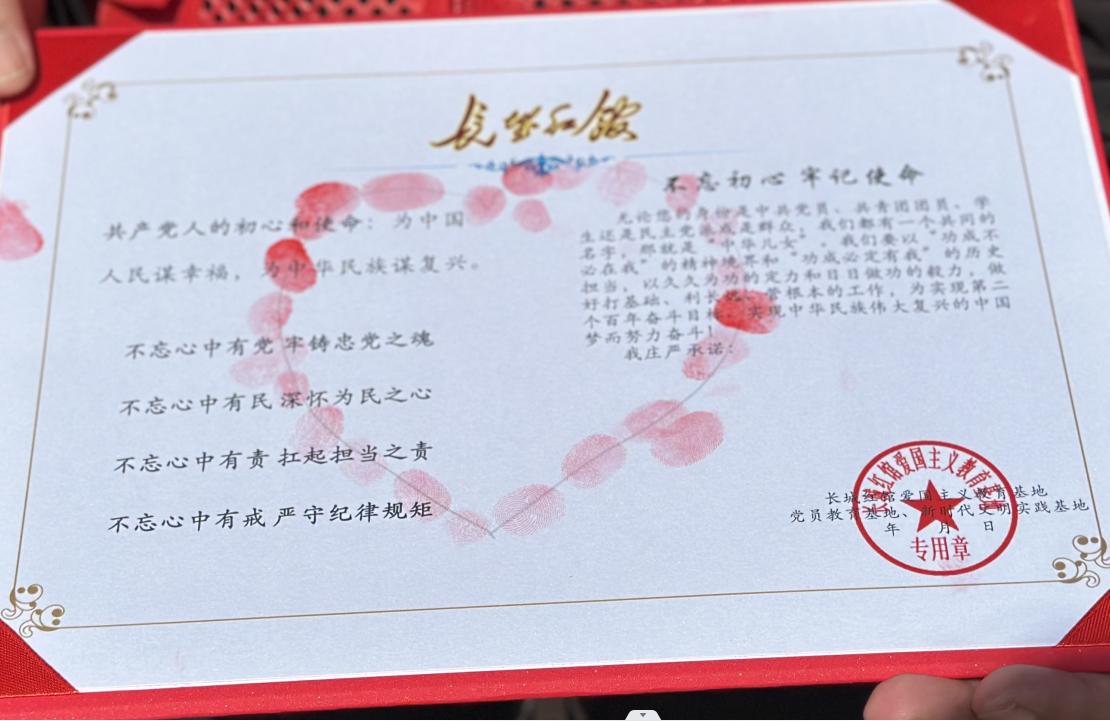 长城红馆
共产党人的初心和使命：为中国
人民谋幸福，为中华民族谋复兴。
不忘心中有党 牢铸忠党之魂
不忘心中有民 深怀为民之心
不忘心中有责 扛起担当之责
不忘心中有戒 严守纪律规矩
不忘初心 牢记使命
无论您的身份是中共党员、共青团团员、学
生还是民主党派或是群众；我们都有一个共同的
名字，那就是“中华儿女”。我们要以“功成不
必在我”的精神境界和“功成必定有我”的历史
担当，以久久为功的定力和日日做功的毅力，做
好打基础、利长远、管根本的工作，为实现第二
个百年奋斗目标、实现中华民族伟大复兴的中国
梦而努力奋斗！
我庄严承诺：
长城红馆爱国主义教育基地
党员教育基地、新时代文明实践基地
年 月 日
长城红馆爱国主义教育基地
专用章